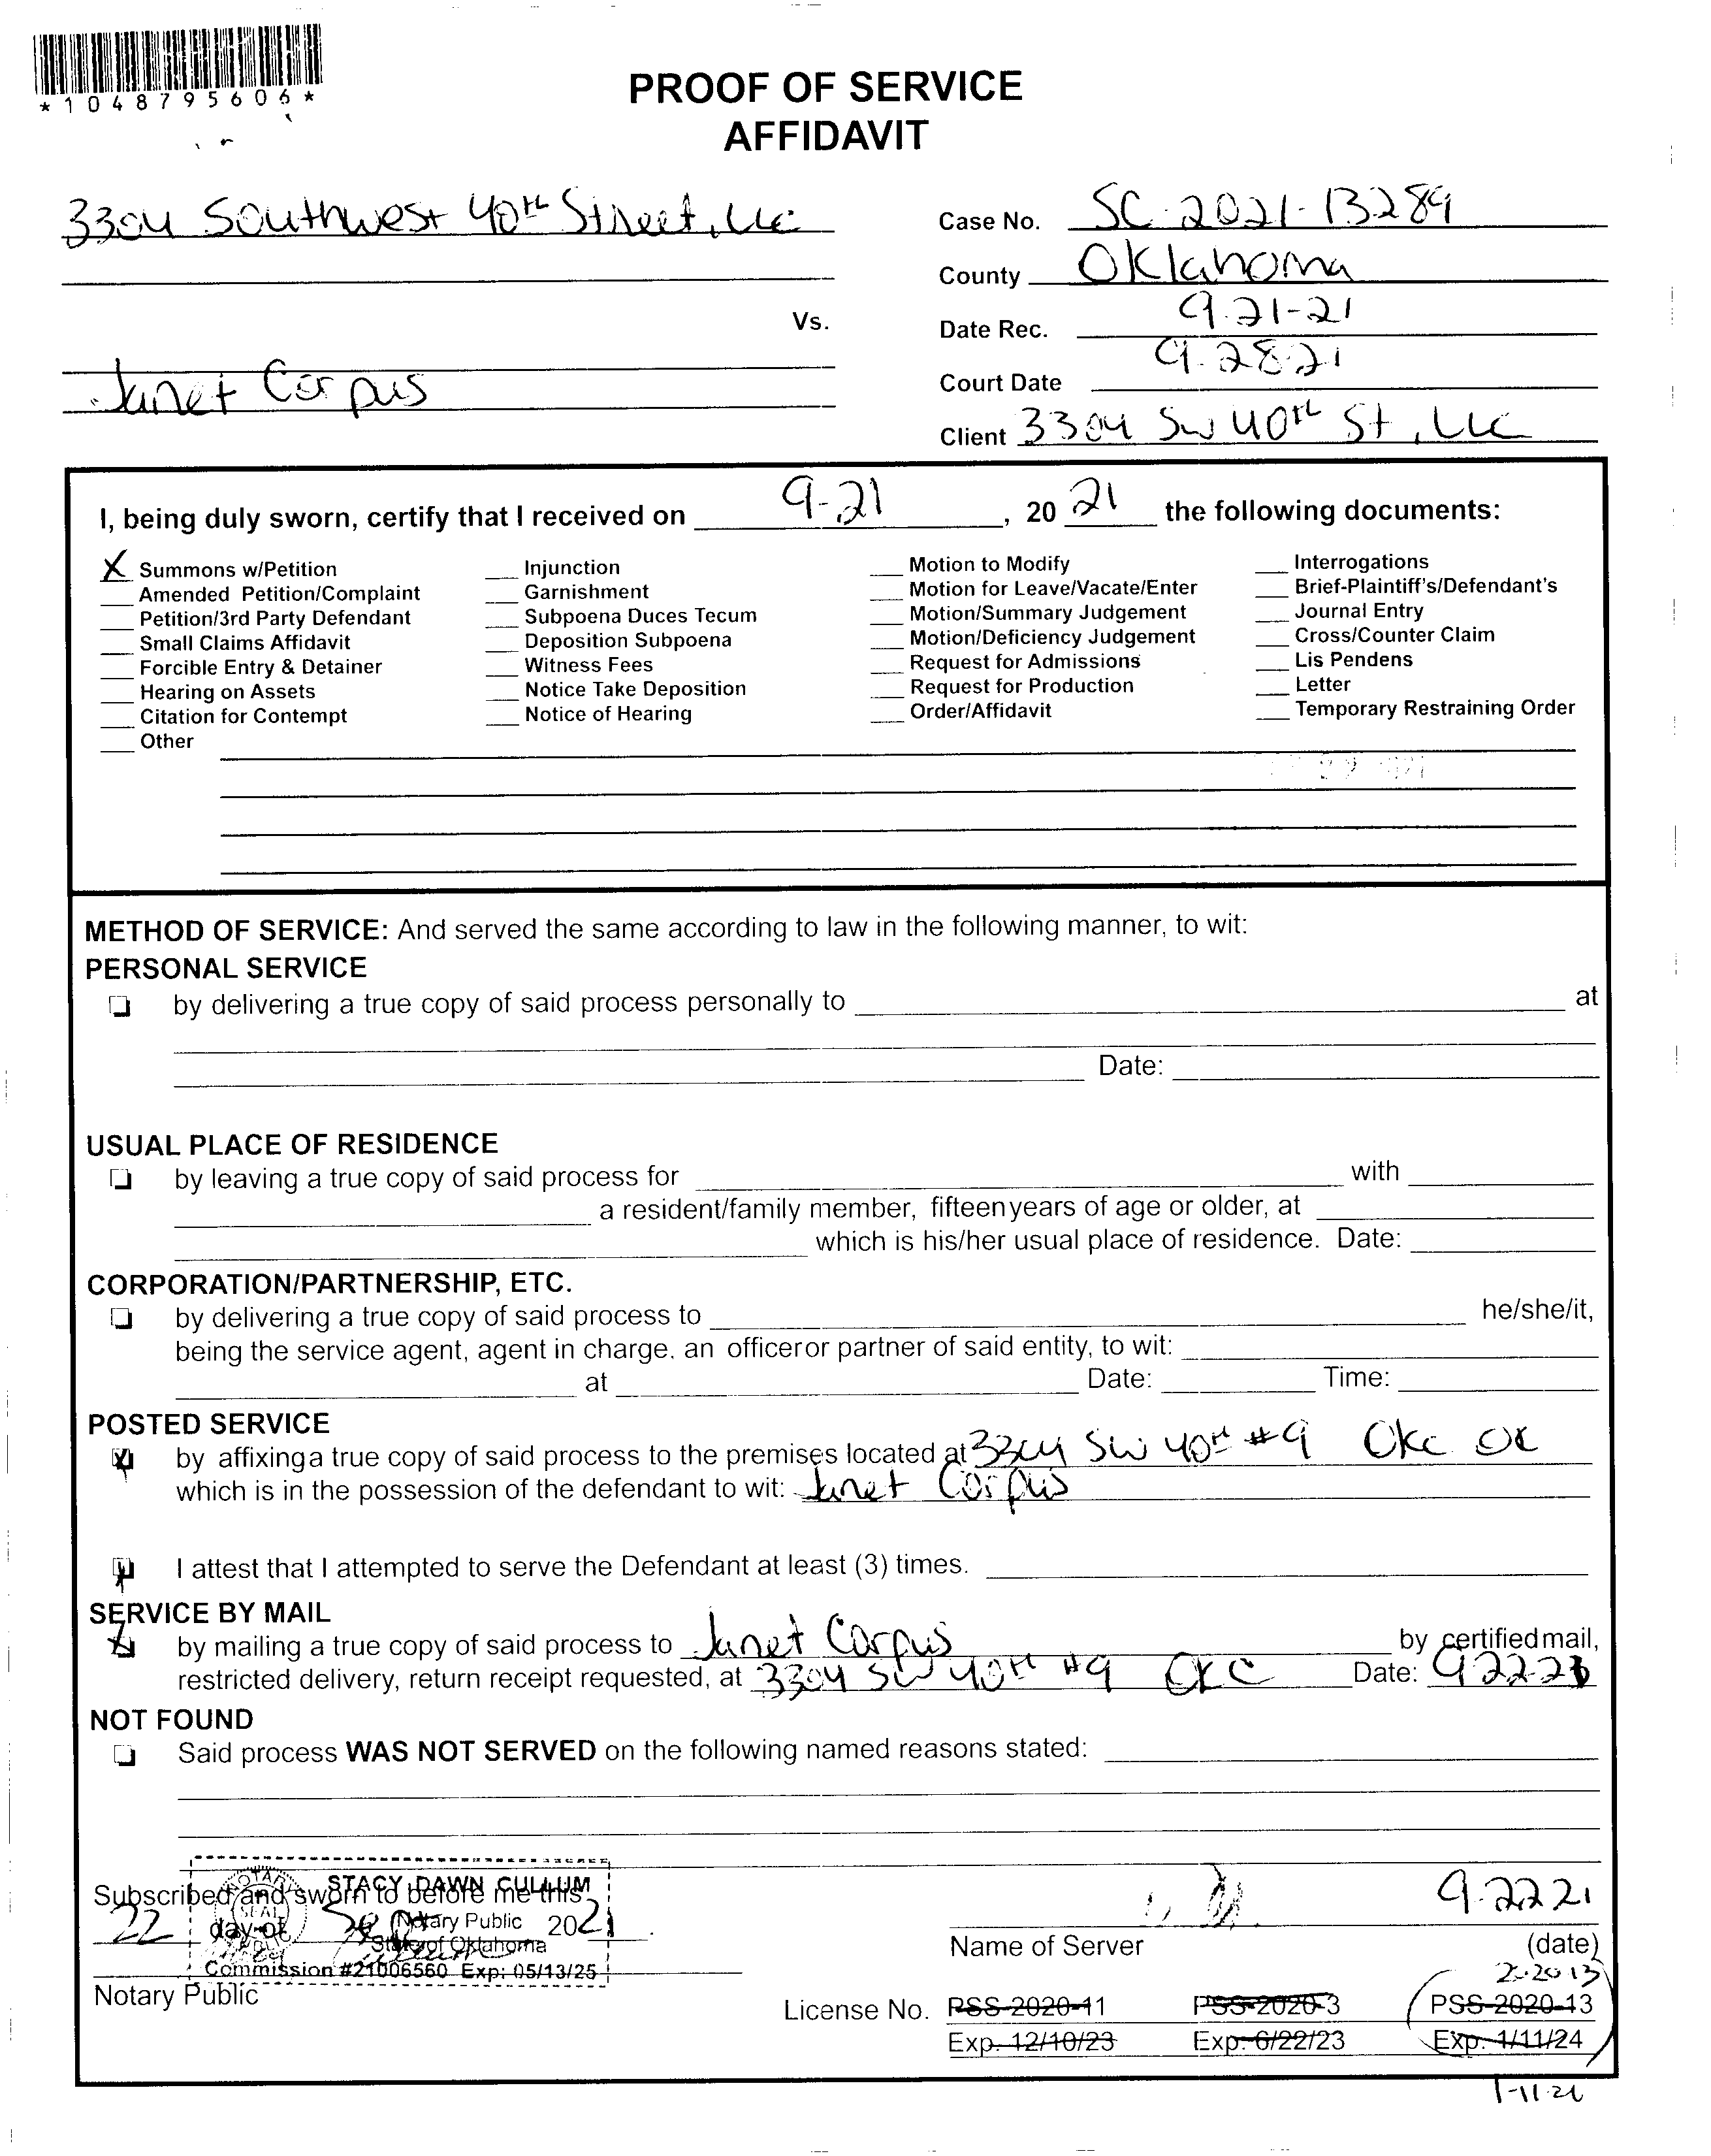 *1048795606*
PROOF OF SERVICE
AFFIDAVIT
3304 Southwest 40th Street, LLC
Case No. SC-2021-13289
County Oklahoma
Vs.
Date Rec. 9-21-21
Court Date 9-28-21
Janet Corpus
Client 3304 SW 40th St, LLC
I, being duly sworn, certify that I received on 9-21, 20 21 the following documents:
X Summons w/Petition
Amended Petition/Complaint
Petition/3rd Party Defendant
Small Claims Affidavit
Forcible Entry & Detainer
Hearing on Assets
Citation for Contempt
Other
Injunction
Garnishment
Subpoena Duces Tecum
Deposition Subpoena
Witness Fees
Notice Take Deposition
Notice of Hearing
Motion to Modify
Motion for Leave/Vacate/Enter
Motion/Summary Judgement
Motion/Deficiency Judgement
Request for Admissions
Request for Production
Order/Affidavit
Interrogations
Brief-Plaintiff's/Defendant's
Journal Entry
Cross/Counter Claim
Lis Pendens
Letter
Temporary Restraining Order
METHOD OF SERVICE: And served the same according to law in the following manner, to wit:
PERSONAL SERVICE
by delivering a true copy of said process personally to at
Date:
USUAL PLACE OF RESIDENCE
by leaving a true copy of said process for with
a resident/family member, fifteen years of age or older, at
which is his/her usual place of residence. Date:
CORPORATION/PARTNERSHIP, ETC.
by delivering a true copy of said process to he/she/it,
being the service agent, agent in charge, an officer or partner of said entity, to wit:
at Date: Time:
POSTED SERVICE
X by affixing a true copy of said process to the premises located at 3304 SW 40th #9 OKC OK
which is in the possession of the defendant to wit: Janet Corpus
I attest that I attempted to serve the Defendant at least (3) times.
SERVICE BY MAIL
by mailing a true copy of said process to Janet Corpus by certified mail,
restricted delivery, return receipt requested, at 3304 SW 40th #9 OKC Date: 9-22-21
NOT FOUND
Said process WAS NOT SERVED on the following named reasons stated:
Subscribed and sworn to before me this
22 day of Sept 2021
STACY DAWN CULLUM
Notary Public
State of Oklahoma
Commission #21006560 Exp: 05/13/25
Notary Public
9-22-21
Name of Server (date)
2020 13
License No. PSS-2020-11 PSS-2020-3 PSS-2020-13
Exp. 12/10/23 Exp. 6/22/23 Exp. 1/11/24